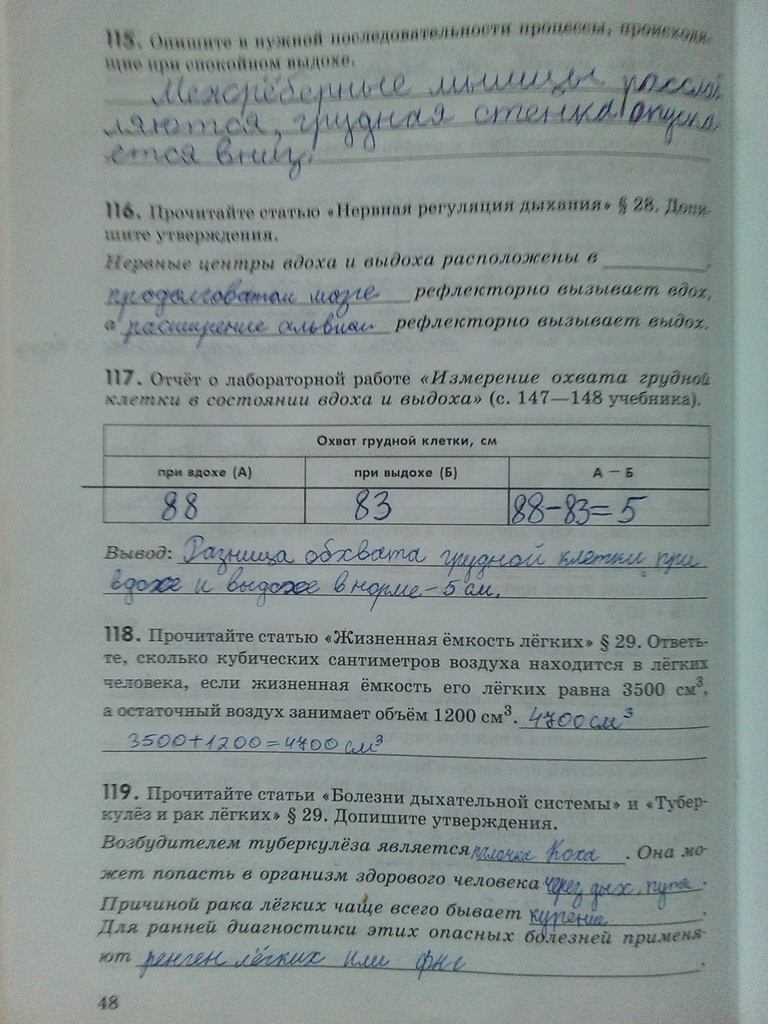 115. Опишите в нужной последовательности процессы, происходя-
щие при спокойном выдохе.
Межрёберные мышцы расслаб
ляются, грудная стенка опуска
ется вниз.
116. Прочитайте статью «Нервная регуляция дыхания» § 28. Допи-
шите утверждения.
Нервные центры вдоха и выдоха расположены в ,
продолговатом мозге рефлекторно вызывает вдох,
а расширение альвиол рефлекторно вызывает выдох.
117. Отчёт о лабораторной работе «Измерение охвата грудной
клетки в состоянии вдоха и выдоха» (с. 147—148 учебника).
Охват грудной клетки, см
при вдохе (А) при выдохе (Б) А – Б
88 83 88-83=5
Вывод: Разница обхвата грудной клетки при
вдохе и выдохе в норме - 5 см.
118. Прочитайте статью «Жизненная ёмкость лёгких» § 29. Ответь-
те, сколько кубических сантиметров воздуха находится в лёгких
человека, если жизненная ёмкость его лёгких равна 3500 см³,
а остаточный воздух занимает объём 1200 см³. 4700 см³
3500+1200=4700 см³
119. Прочитайте статьи «Болезни дыхательной системы» и «Тубер-
кулёз и рак лёгких» § 29. Допишите утверждения.
Возбудителем туберкулёза является палочка Коха. Она мо-
жет попасть в организм здорового человека через дых. пути.
Причиной рака лёгких чаще всего бывает курение.
Для ранней диагностики этих опасных болезней применя-
ют ренген лёгких или
48